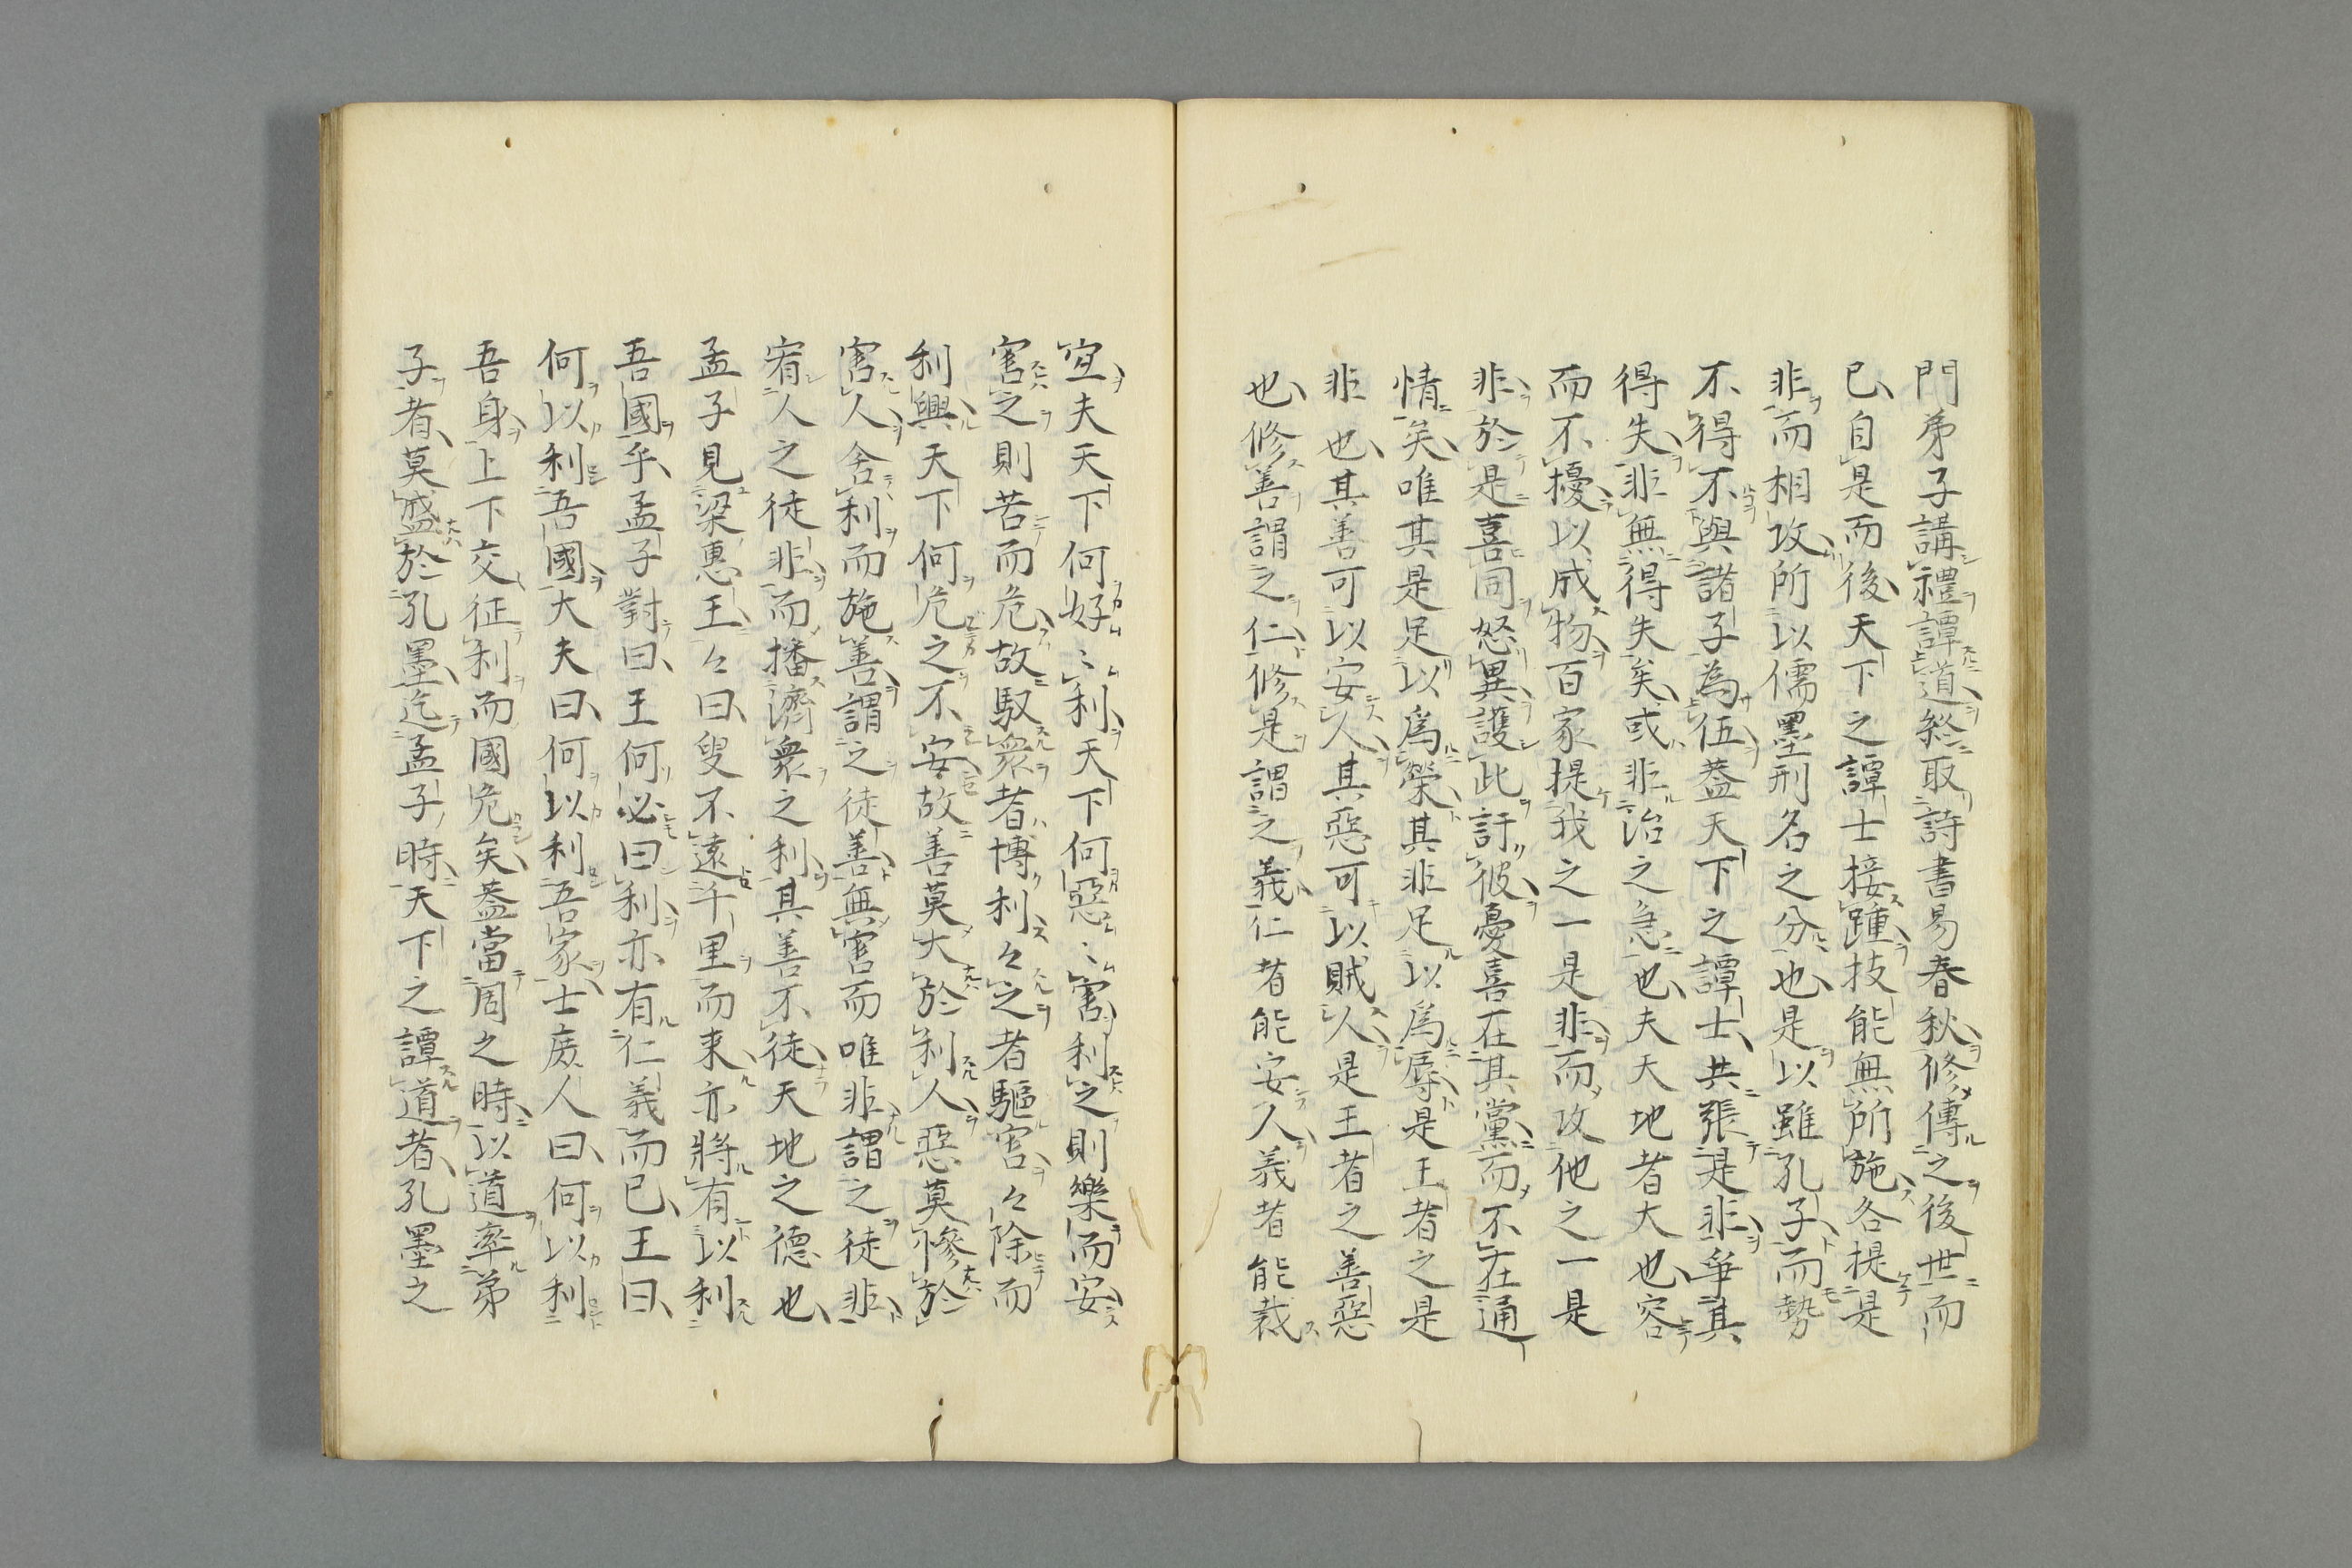 門弟子講禮譚道終取詩書易春秋修傳之後世而
已自是而後天下之譚士接踵技能無所施各提是
非而相攻所以儒墨刑名之分也是以雖孔子而勢
不得不與諸子為伍蓋天下之譚士共張是非爭其
得失非無得失矣或非治之急也夫天地者大也容
而不擾以成物百家提我之一是非而攻他之一是
非於是喜同怒異護此訐彼憂喜在其黨而不在通
情矣唯其是足以爲榮其非足以爲辱是王者之是
非也其善可以安人其惡可以賊人是王者之善惡
也修善謂之仁修是謂之義仁者能安人義者能裁
宜夫天下何好〻利天下何惡〻害利之則樂而安
害之則苦而危故馭衆者博利々之者驅害々除而
利興天下何危之不安故善莫大於利人惡莫慘於
害人舍利而施善謂之徒善無害而唯非謂之徒非
宥人之徒非而播濟衆之利其善不徒天地之德也
孟子見梁惠王々曰叟不遠千里而来亦將有以利
吾國乎孟子對曰王何必曰利亦有仁義而已王曰
何以利吾國大夫曰何以利吾家士庶人曰何以利
吾身上下交征利而國危矣蓋當周之時以道率弟
子者莫盛於孔墨迄孟子時天下之譚道者孔墨之